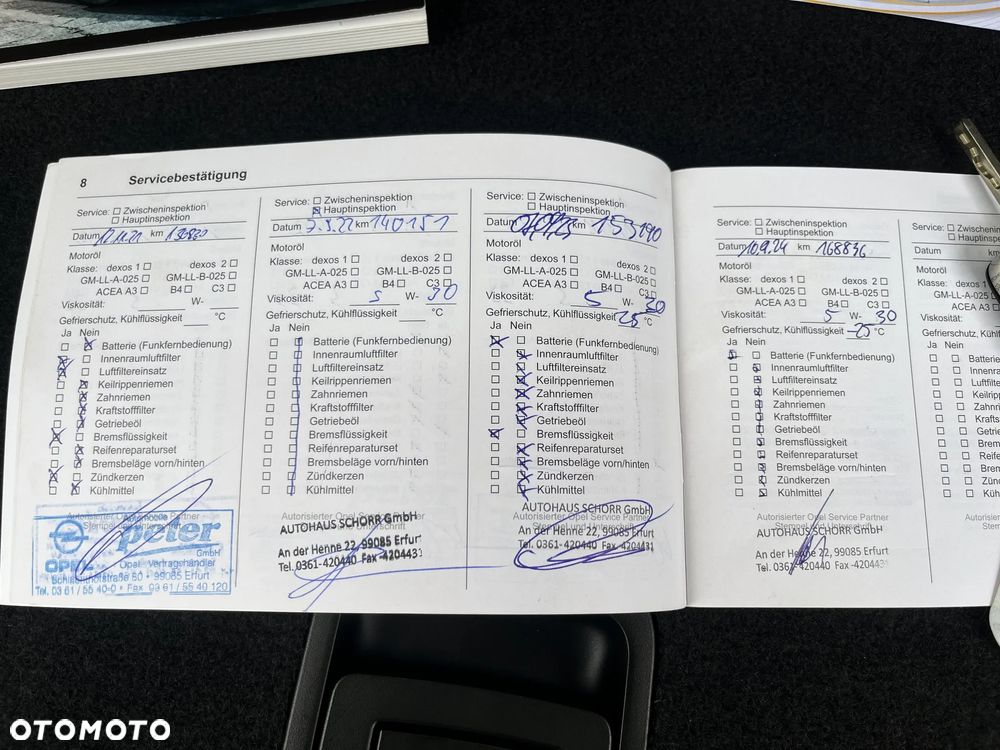 8 Servicebestätigung
Service: Zwischeninspektion
Hauptinspektion
Datum 12.11.21 km
Motoröl
Klasse: dexos 1 dexos 2
GM-LL-A-025 GM-LL-B-025
ACEA A3 B4 C3
Viskosität: W-
Gefrierschutz, Kühlflüssigkeit °C
Ja Nein
Batterie (Funkfernbedienung)
Innenraumluftfilter
Luftfiltereinsatz
Keilrippenriemen
Zahnriemen
Kraftstofffilter
Getriebeöl
Bremsflüssigkeit
Reifenreparaturset
Bremsbeläge vorn/hinten
Zündkerzen
Kühlmittel
Autorisierter Opel Service Partner
Stempel und Unterschrift
Automobile
peter
GmbH
OPEL Opel Vertragshändler
80 · 99085 Erfurt
Tel. 03 61 / 55 40-0 · Fax 03 61 / 55 40 120
Service: Zwischeninspektion
Hauptinspektion
Datum 7.3.22 km 140151
Motoröl
Klasse: dexos 1 dexos 2
GM-LL-A-025 GM-LL-B-025
ACEA A3 B4 C3
Viskosität: 5 W- 30
Gefrierschutz, Kühlflüssigkeit °C
Ja Nein
Batterie (Funkfernbedienung)
Innenraumluftfilter
Luftfiltereinsatz
Keilrippenriemen
Zahnriemen
Kraftstofffilter
Getriebeöl
Bremsflüssigkeit
Reifenreparaturset
Bremsbeläge vorn/hinten
Zündkerzen
Kühlmittel
Autorisierter Opel Service Partner
Stempel und Unterschrift
AUTOHAUS SCHORR GmbH
An der Henne 22, 99085 Erfurt
Tel. 0361-420440 Fax -4204431
Service: Zwischeninspektion
Hauptinspektion
Datum km 153190
Motoröl
Klasse: dexos 1 dexos 2
GM-LL-A-025 GM-LL-B-025
ACEA A3 B4 C3
Viskosität: 5 W- 30
Gefrierschutz, Kühlflüssigkeit -25 °C
Ja Nein
Batterie (Funkfernbedienung)
Innenraumluftfilter
Luftfiltereinsatz
Keilrippenriemen
Zahnriemen
Kraftstofffilter
Getriebeöl
Bremsflüssigkeit
Reifenreparaturset
Bremsbeläge vorn/hinten
Zündkerzen
Kühlmittel
Autorisierter Opel Service Partner
Stempel und Unterschrift
AUTOHAUS SCHORR GmbH
An der Henne 22, 99085 Erfurt
Tel. 0361-420440 Fax -4204431
Service: Zwischeninspektion
Hauptinspektion
Datum 10.9.24 km 168836
Motoröl
Klasse: dexos 1 dexos 2
GM-LL-A-025 GM-LL-B-025
ACEA A3 B4 C3
Viskosität: 5 W- 30
Gefrierschutz, Kühlflüssigkeit -25 °C
Ja Nein
Batterie (Funkfernbedienung)
Innenraumluftfilter
Luftfiltereinsatz
Keilrippenriemen
Zahnriemen
Kraftstofffilter
Getriebeöl
Bremsflüssigkeit
Reifenreparaturset
Bremsbeläge vorn/hinten
Zündkerzen
Kühlmittel
Autorisierter Opel Service Partner
Stempel und Unterschrift
AUTOHAUS SCHORR GmbH
An der Henne 22, 99085 Erfurt
Tel. 0361-420440 Fax -4204431
Service: Zwischenins
Hauptinspek
Datum km
Motoröl
Klasse: dexos 1
GM-LL-A-025
ACEA A3
Viskosität:
Gefrierschutz, Kühlflüs
Ja Nein
Batterie (Fun
Innenrauml
Luftfilterei
Keilripper
Zahnriem
Kraftsto
Getrie
Bremsf
Reifen
Brems
Zündk
Kühl
Autorisierter
Stem
OTOMOTO